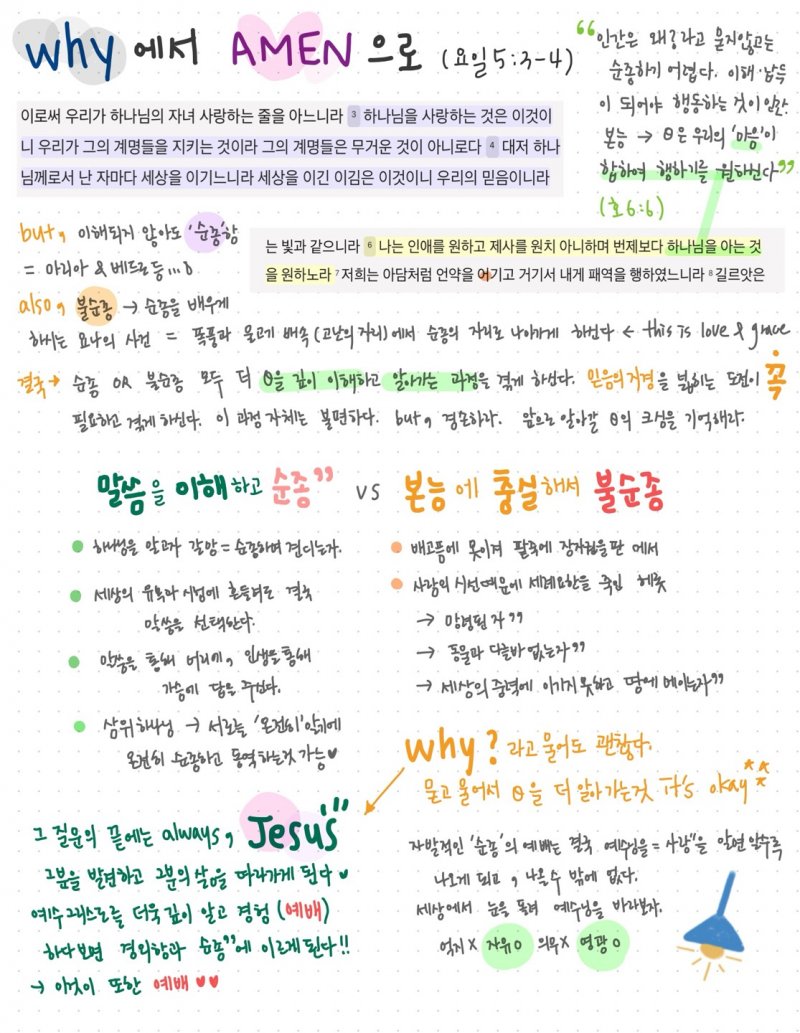 why에서 AMEN으로 (요일 5:3-4)
이로써 우리가 하나님의 자녀 사랑하는 줄을 아느니라 3 하나님을 사랑하는 것은 이것이
니 우리가 그의 계명들을 지키는 것이라 그의 계명들은 무거운 것이 아니로다 4 대저 하나
님께로서 난 자마다 세상을 이기느니라 세상을 이긴 이김은 이것이니 우리의 믿음이니라
“인간은 왜?라고 묻지않고는
순종하기 어렵다. 이해·납득
이 되어야 행동하는 것이 인간
본능 → θ은 우리의 '마음'이
합하여 행하기를 원하신다”
(호6:6)
but, 이해되지 않아도 '순종'함
= 마리아 & 베드로 등...
는 빛과 같으니라 6 나는 인애를 원하고 제사를 원치 아니하며 번제보다 하나님을 아는 것
을 원하노라 7 저희는 아담처럼 언약을 어기고 거기서 내게 패역을 행하였느니라 8 길르앗은
also, 불순종 → 순종을 배우게
하시는 요나의 사건 = 폭풍과 물고기 배속(고난의 자리)에서 순종의 자리로 나아가게 하신다 ← this is love & grace
결국→ 순종 OR 불순종 모두 더 θ을 깊이 이해하고 알아가는 과정을 겪게 하신다. 믿음의 지경을 넓히는 도전이 꼭
필요하고 겪게하신다. 이 과정 자체는 불편하다. but, 겸손하라. 앞으로 알아갈 θ의 크심을 기억해라.
말씀을 이해하고 순종” vs 본능에 충실해서 불순종
하나님을 알고자 갈망 = 순종하며 견디는자.
세상의 유혹과 시험에 흔들려도 결국
말씀을 선택한다.
말씀을 통해 머리에, 인생을 통해
가슴에 답을 주신다.
삼위하나님 → 서로를 '온전히' 알기에
온전히 순종하고 동역하는것 가능♥
배고픔에 못이겨 팥죽에 장자권을 판 에서
사람의 시선때문에 세례요한을 죽인 헤롯
→ 망령된 자”
→ 동물과 다를바 없는자”
→ 세상의 중력에 이기지 못하고 땅에 매이는자”
why? 라고 물어도 괜찮다.
묻고 물어서 θ을 더 알아가는것 it's okay
그 질문의 끝에는 always, Jesus
그분을 발견하고 그분의 삶을 따라가게 된다♥
예수그리스도를 더욱 깊이 알고 경험(예배)
하다보면 경외함과 순종”에 이르게된다!!
→ 이것이 또한 예배♥♥
자발적인 '순종'의 예배는 결국 예수님을 = 사랑”을 알면 알수록
나오게 되고, 나올 수 밖에 없다.
세상에서 눈을 돌려 예수님을 바라보자.
억지 X 자유 O 의무 X 영광 O